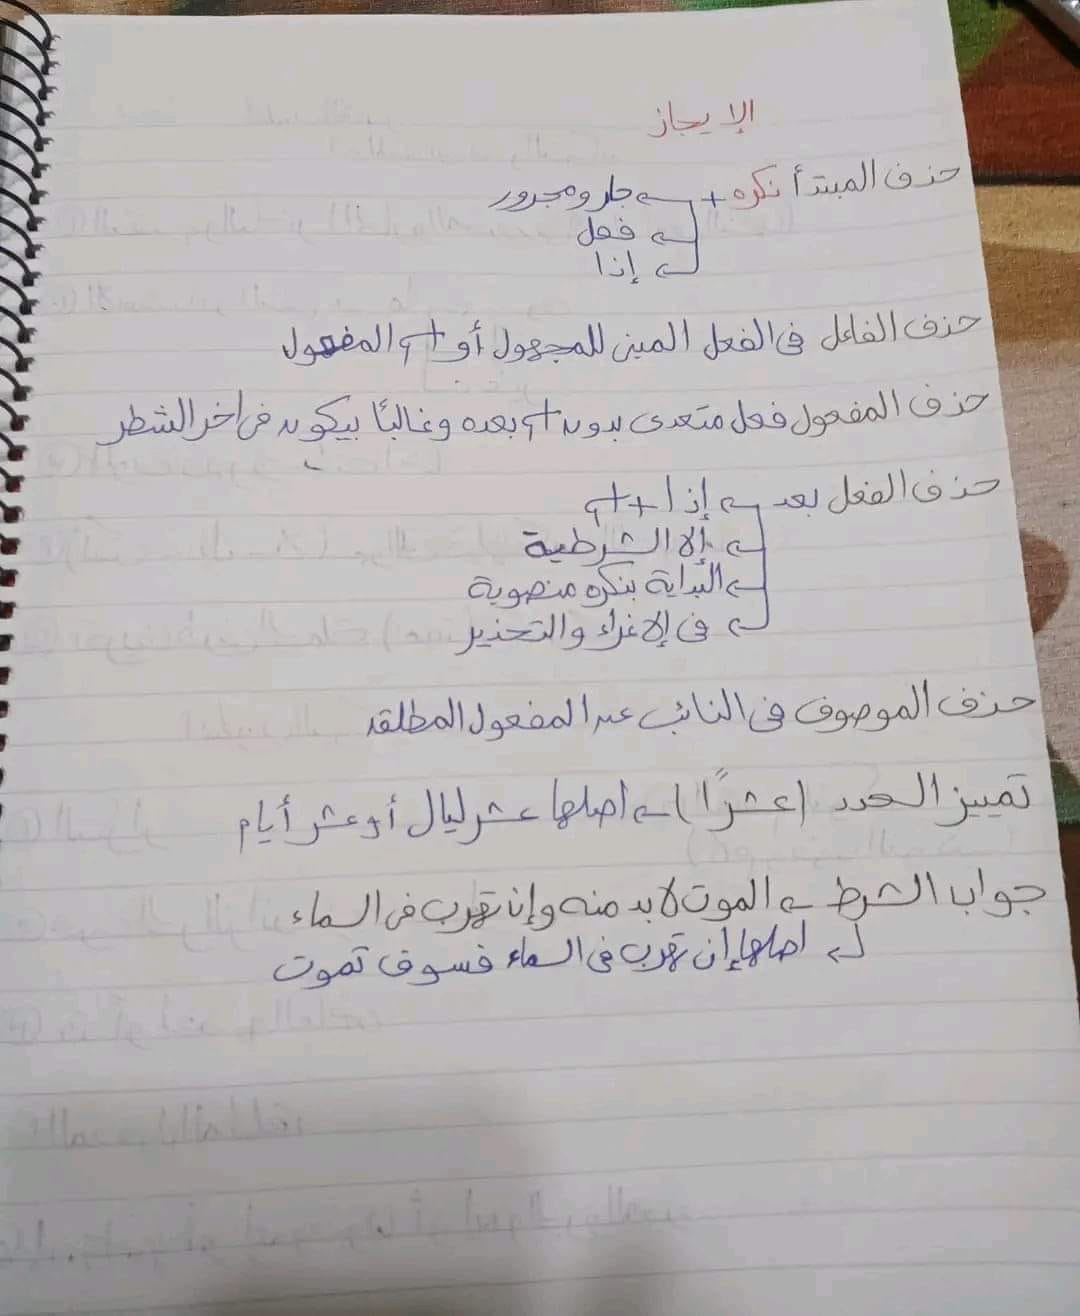 الإيجاز
حذف المبتدأ نكره + ← جار ومجرور
← فعل
← إذا
حذف الفاعل فى الفعل المبنى للمجهول أو ت المفعول
حذف المفعول فعل متعدى بدون بعده وغالبًا بيكون فى اخر الشطر
حذف الفعل بعد ← إذا +
← إلا الشرطية
← البداية بنكره منصوبة
← فى الإغراء والتحذير
حذف الموصوف فى النائب عن المفعول المطلق
تمييز العدد (عشرًا) ← اصلها عشر ليال أو عشر أيام
جواب الشرط ← الموت لابد منه وإن تهرب فى السماء
← اصلها إن تهرب فى السماء فسوف تموت